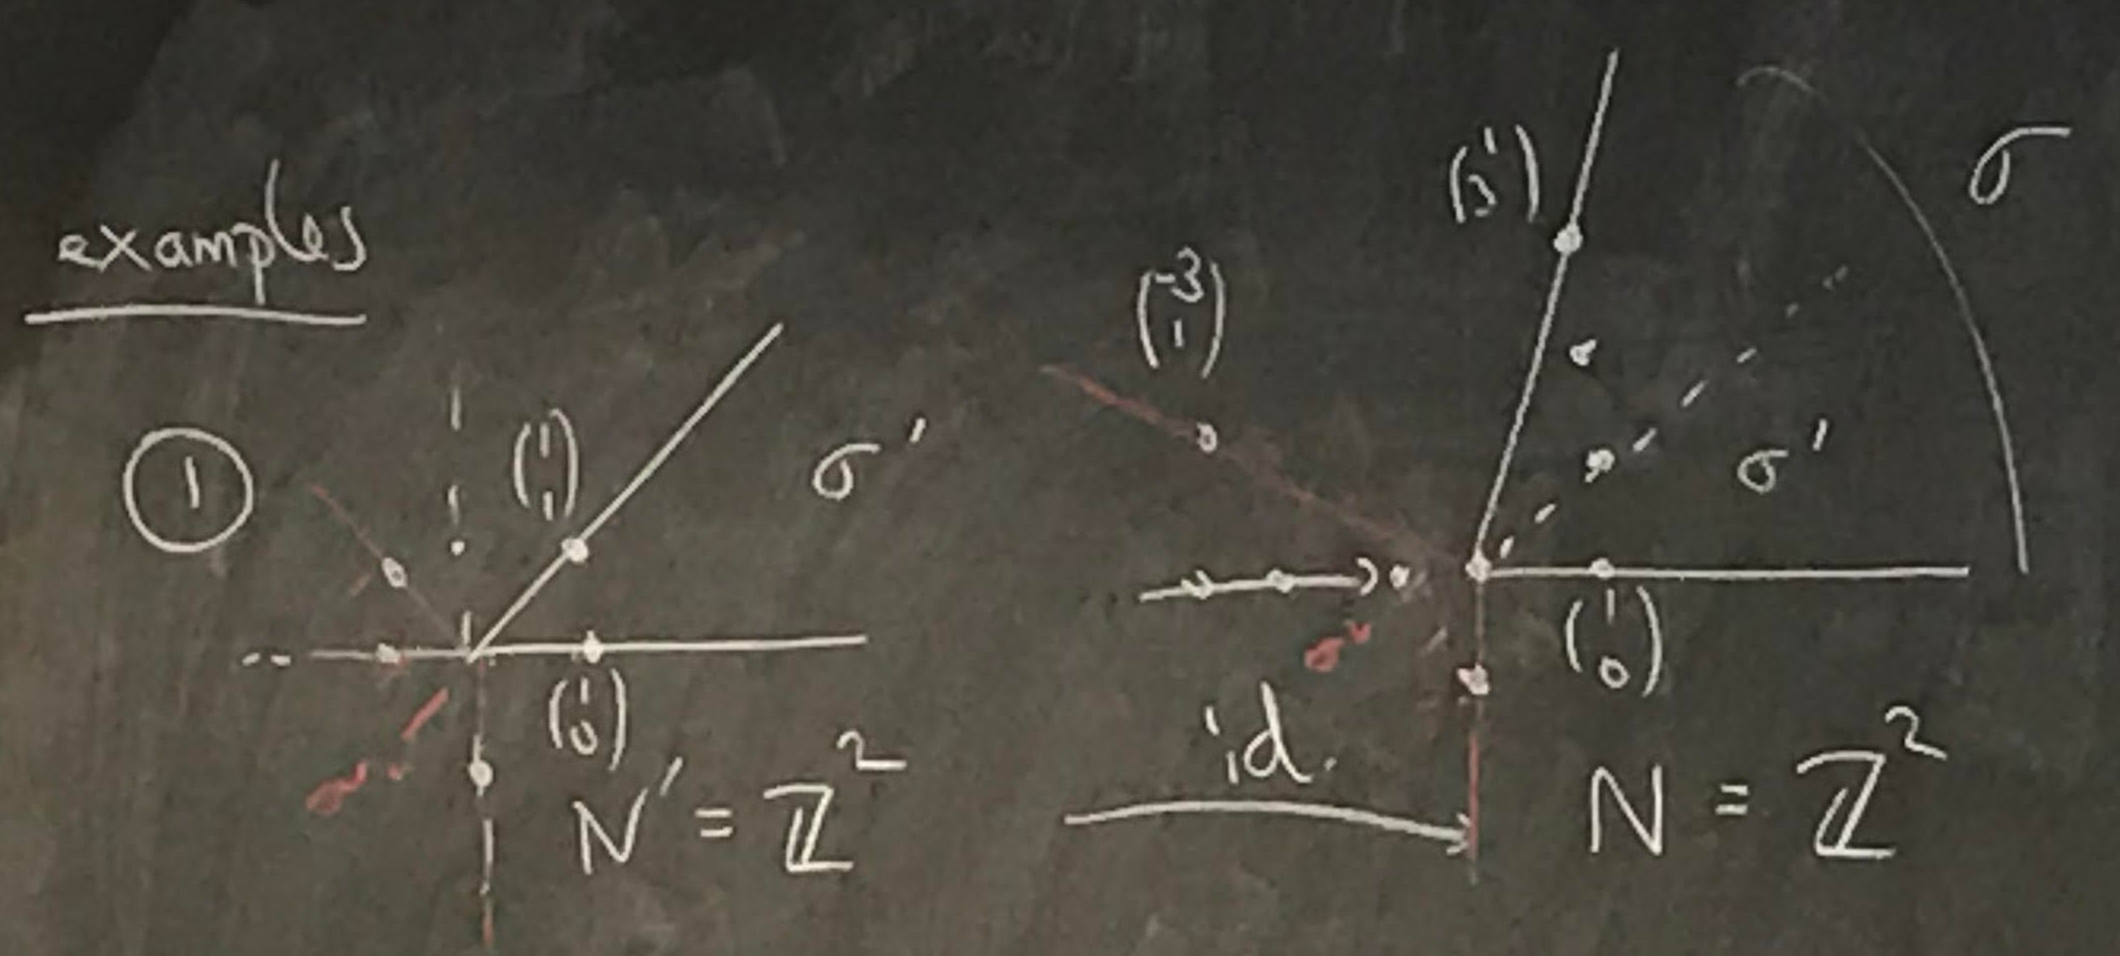 examples
①
(1 1)
σ'
(1 0)
N' = ℤ²
id.
(-3 1)
(1 3)
σ
σ'
(1 0)
σᵛ
N = ℤ²